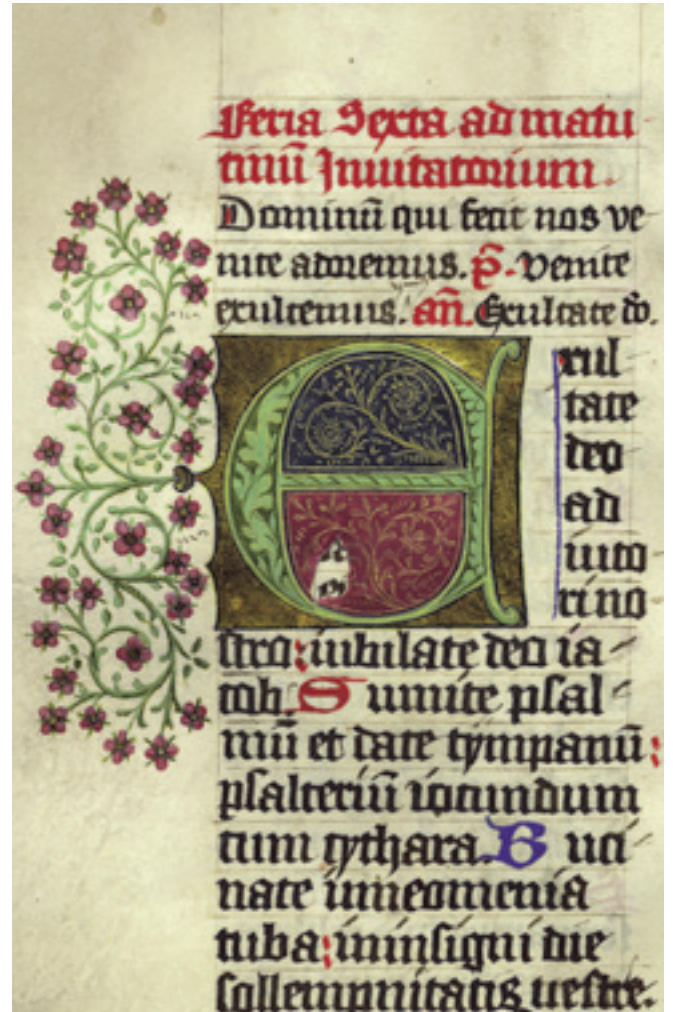 Feria Sexta ad matu
tinū Inuitatorium.
Dominū qui fecit nos ve-
nite adoremus. p̄. Venite
exultemus. an̄. Exultate do.
Exul
tate
deo
ad
iuto-
ri no
stro: iubilate deo ia-
cob. Sumite psal-
mū et date tympanū:
psalteriū iocundum
cum cythara. Buci-
nate in neomenia
tuba: in insigni die
sollempnitatis uestre.